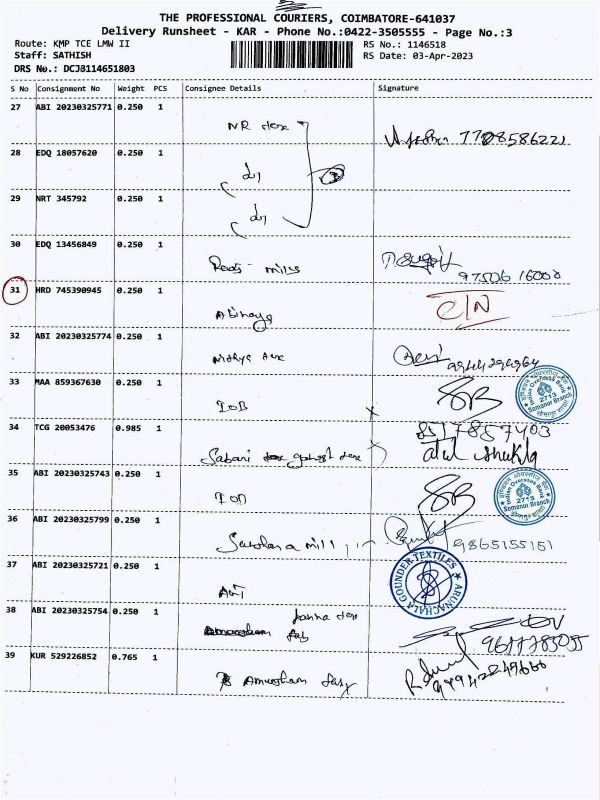 THE PROFESSIONAL COURIERS, COIMBATORE-641037
Delivery Runsheet - KAR - Phone No.:0422-3505555 - Page No.:3
Route: KMP TCE LMW II
RS No.: 1146518
Staff: SATHISH
RS Date: 03-Apr-2023
DRS No.: DCJ8114651803
S No Consignment No Weight PCS Consignee Details Signature
27 ABI 20230325771 0.250 1
7708586221
28 EDQ 18057620 0.250 1
29 NRT 345792 0.250 1
30 EDQ 13456849 0.250 1
mills
97506 16000
31 HRD 745390945 0.250 1
Abinaya
C/N
32 ABI 20230325774 0.250 1
33 MAA 859367630 0.250 1
IOB
SB
Indian Overseas Bank
2713
Somanur Branch
34 TCG 20053476 0.985 1
8517857403
Sabari
atul shukla
35 ABI 20230325743 0.250 1
IOB
SB
Indian Overseas Bank
2713
Somanur Branch
36 ABI 20230325799 0.250 1
mill
9865155151
37 ABI 20230325721 0.250 1
AGT
ARUNACHALA GOUNDER TEXTILES
38 ABI 20230325754 0.250 1
39 KUR 529226852 0.765 1
Amursham